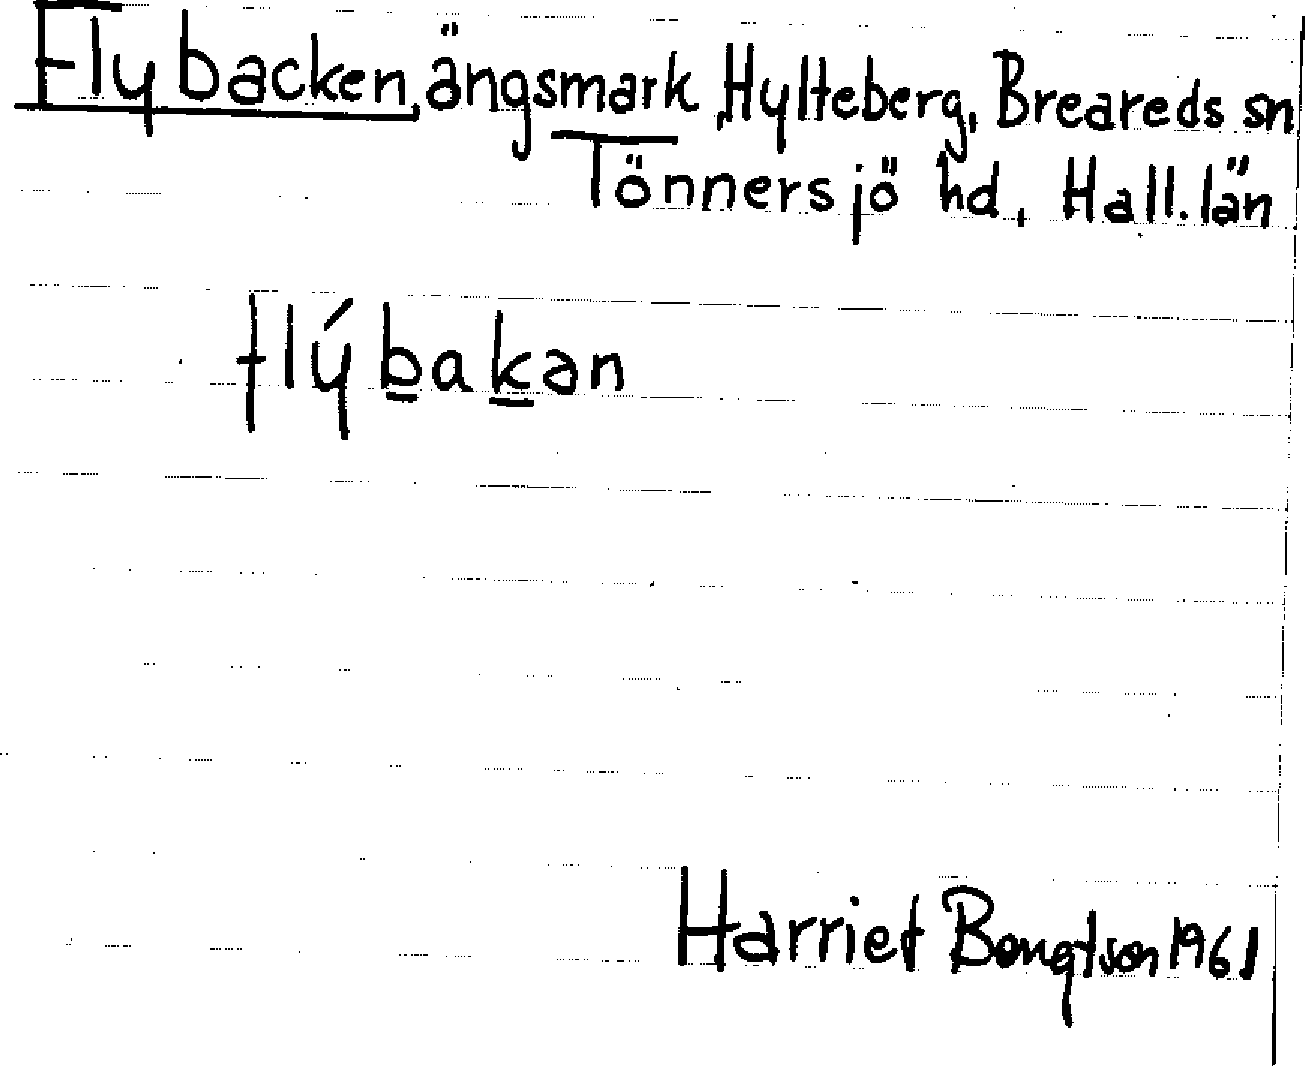 Flybacken, ängsmark, Hylteberg, Breareds sn
Tönnersjö hd, Hall. län
flýbakan
Harriet Bengtson 1961